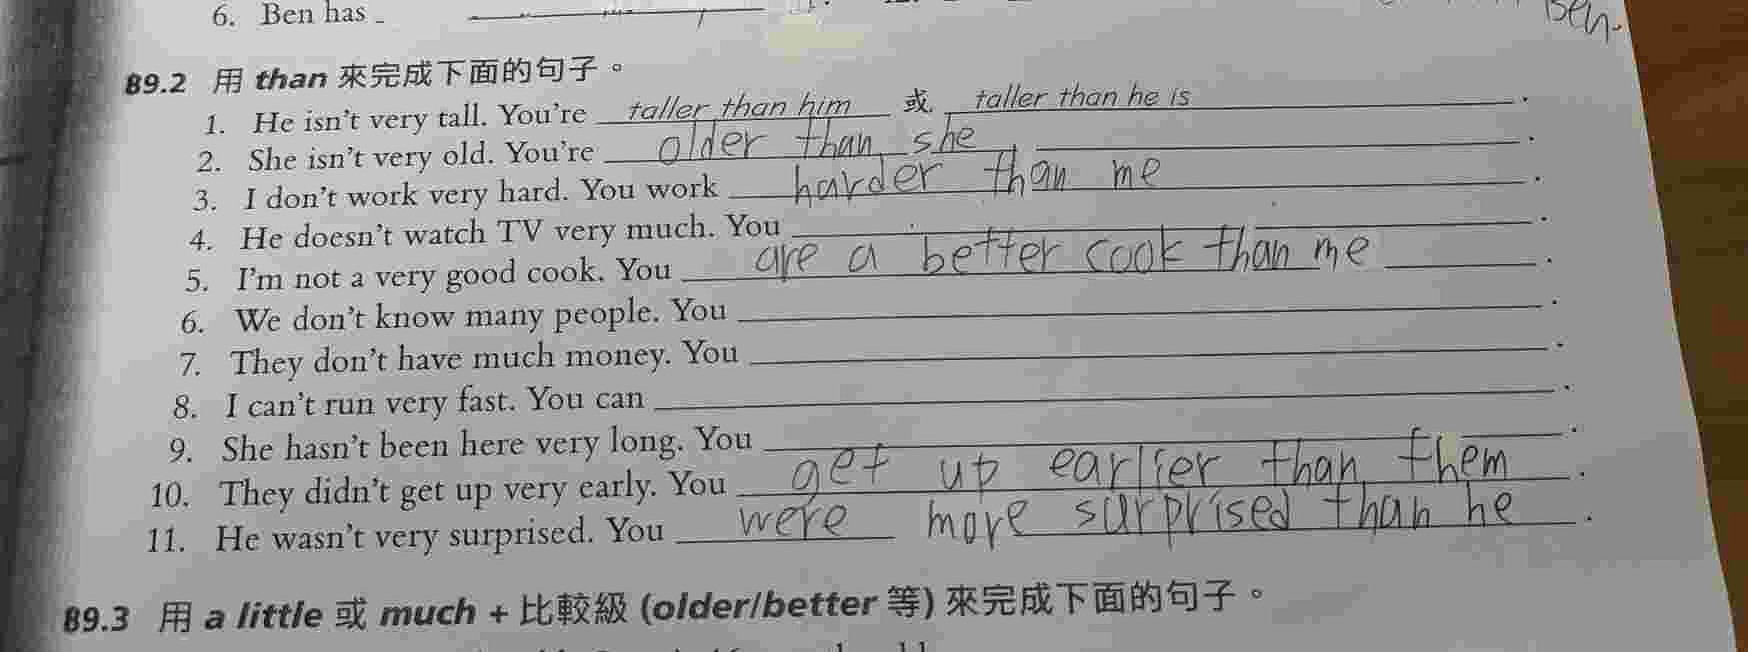 6. Ben has
Ben.
89.2 用 than 來完成下面的句子。
1. He isn't very tall. You're taller than him 或 taller than he is.
2. She isn't very old. You're older than she.
3. I don't work very hard. You work harder than me.
4. He doesn't watch TV very much. You .
5. I'm not a very good cook. You are a better cook than me.
6. We don't know many people. You .
7. They don't have much money. You .
8. I can't run very fast. You can .
9. She hasn't been here very long. You .
10. They didn't get up very early. You get up earlier than them.
11. He wasn't very surprised. You were more surprised than he.
89.3 用 a little 或 much + 比較級 (older/better 等) 來完成下面的句子。